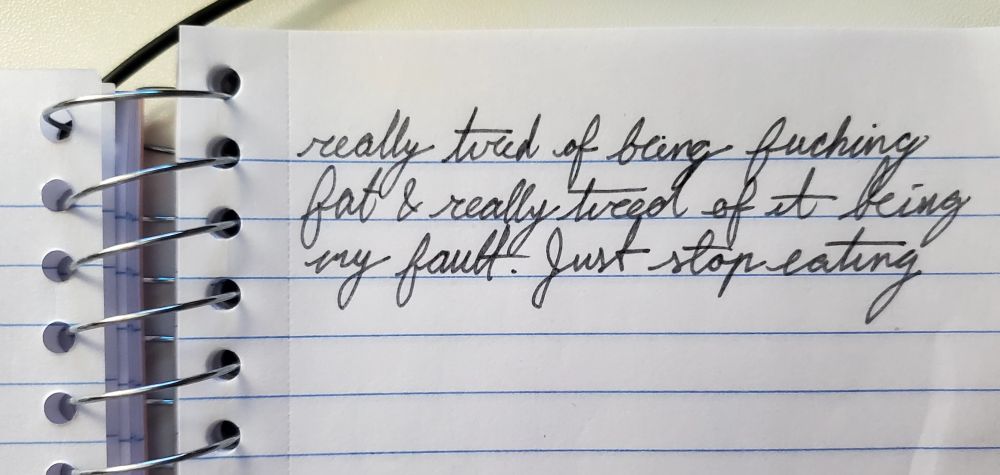 really tired of being fucking
fat & really tired of it being
my fault. Just stop eating